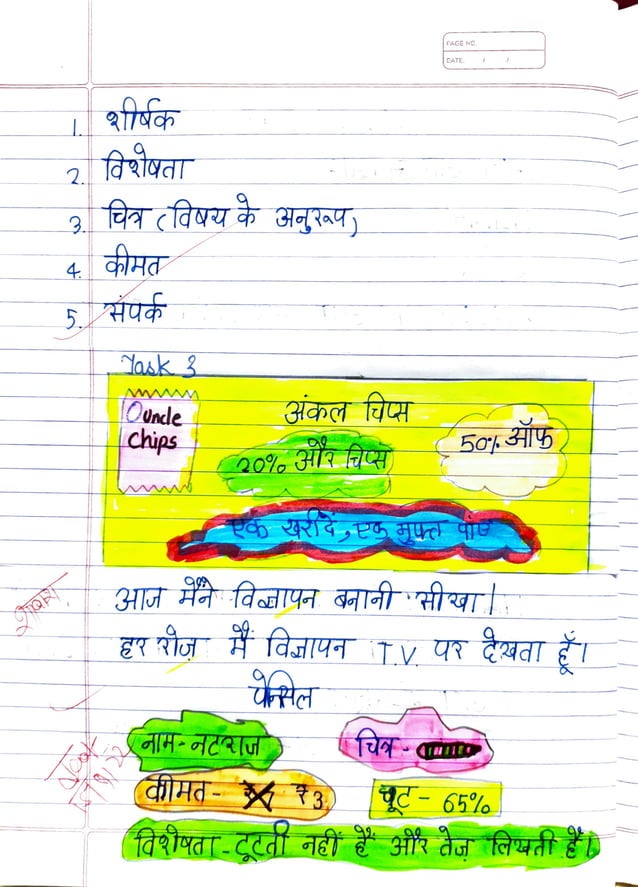 PAGE NO.
DATE. / /
1. शीर्षक
2. विशेषता
3. चित्र (विषय के अनुरूप)
4. कीमत
5. संपर्क
Task 3
अंकल चिप्स
Ouncle
Chips
20% और चिप्स
50% ऑफ
एक खरीदें, एक मुफ्त पाएं
आज मैंने विज्ञापन बनानी सीखा।
हर रोज़ मैं विज्ञापन T.V. पर देखता हूँ।
पेन्सिल
नाम - नटराज
चित्र -
कीमत - ₹3
छूट - 65%
विशेषता - टूटती नहीं हैं और तेज़ लिखती हैं।